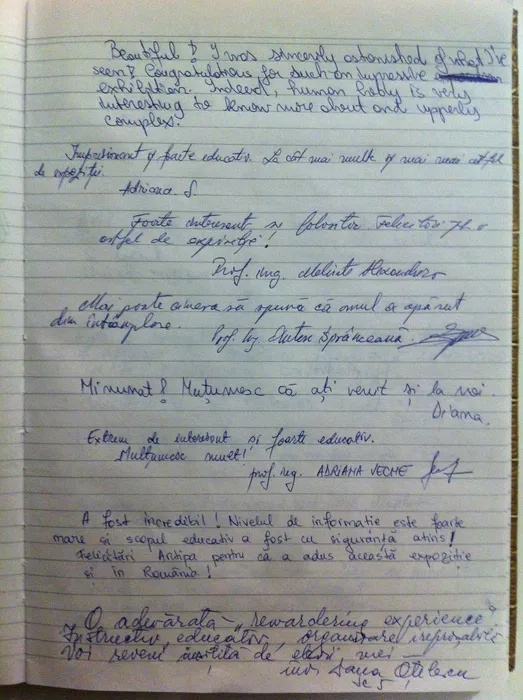 Beautiful! I was sincerely astonished of what I've
seen! Congratulations for such an impressive
exhibition. Indeed, human body is very
interesting to know more about and
complex.
Impresionant și foarte educativ. La cât mai multe și mai astfel
de expoziții.
Adriana S.
Foarte interesant și folositor. Felicitări pt. o
astfel de expoziție!
Prof. ing.
Mai poate cineva să spună că omul a apărut
din întâmplare.
Prof. Ing. Sprânceană
Minunat! Mulțumesc că ați venit și la noi.
Diana.
Extrem de interesant și foarte educativ.
Mulțumesc mult!
prof. ing. ADRIANA VECHE
A fost incredibil! Nivelul de informație este foarte
mare și scopul educativ a fost cu siguranță atins!
Felicitări Antipa pentru că a adus această expoziție
și în România!
O adevărată „rewardering experience"
Instructiv, educativ, organizare ireproșabilă
Voi reveni însoțită de elevii mei
Oana Oțelescu